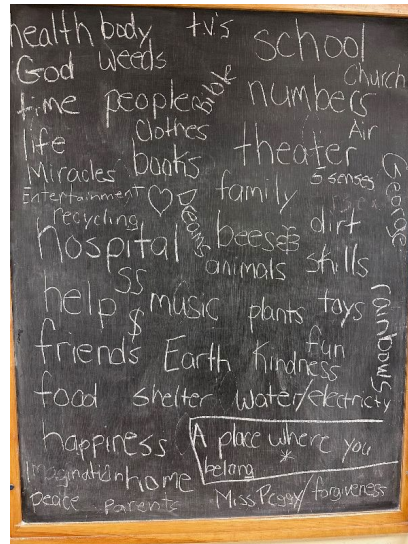 health body tv's school
God weeds Church
time people Bible numbers
life Clothes Air
Miracles books theater
Entertainment ♡ Dreams family 5 senses George
recycling dirt
hospital bees
animals skills
help $$ music plants toys rainbows
$
friends Earth Kindness fun
food shelter water/electricty
happiness A place where you
belang *
Imagination home
peace parents Miss Peggy/forgiveness